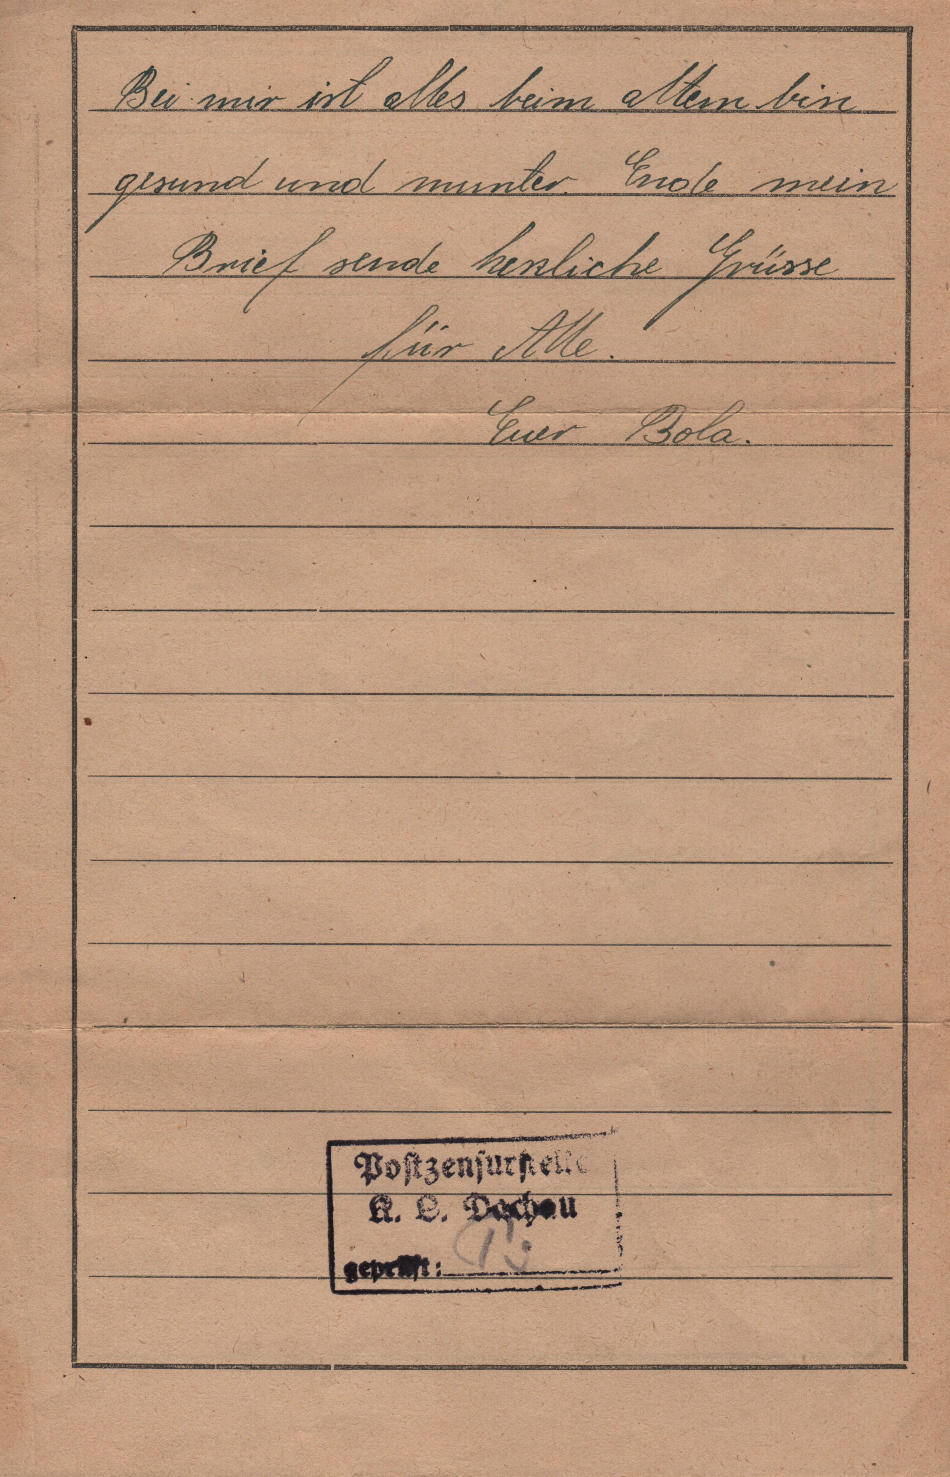 Bei mir ist alles beim altem bin
gesund und munter. Ende mein
Brief sende herzliche Grüsse
für Alle.
Euer Bola.
Postzensurstelle
K. L. Dachau
geprüft: